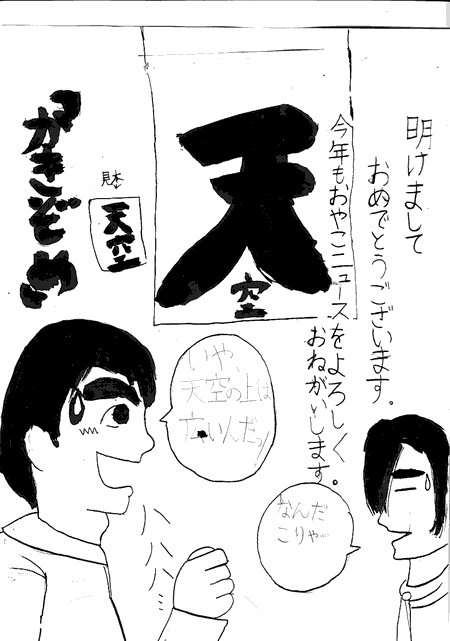 明けまして
おめでとうございます。
今年もおやこニュースをよろしく
おねがいします。
天
空
見本
天空
「かきぞめ」
いや
天空の上は
広いんだっ!
ハハハ
なんだ
こりゃ